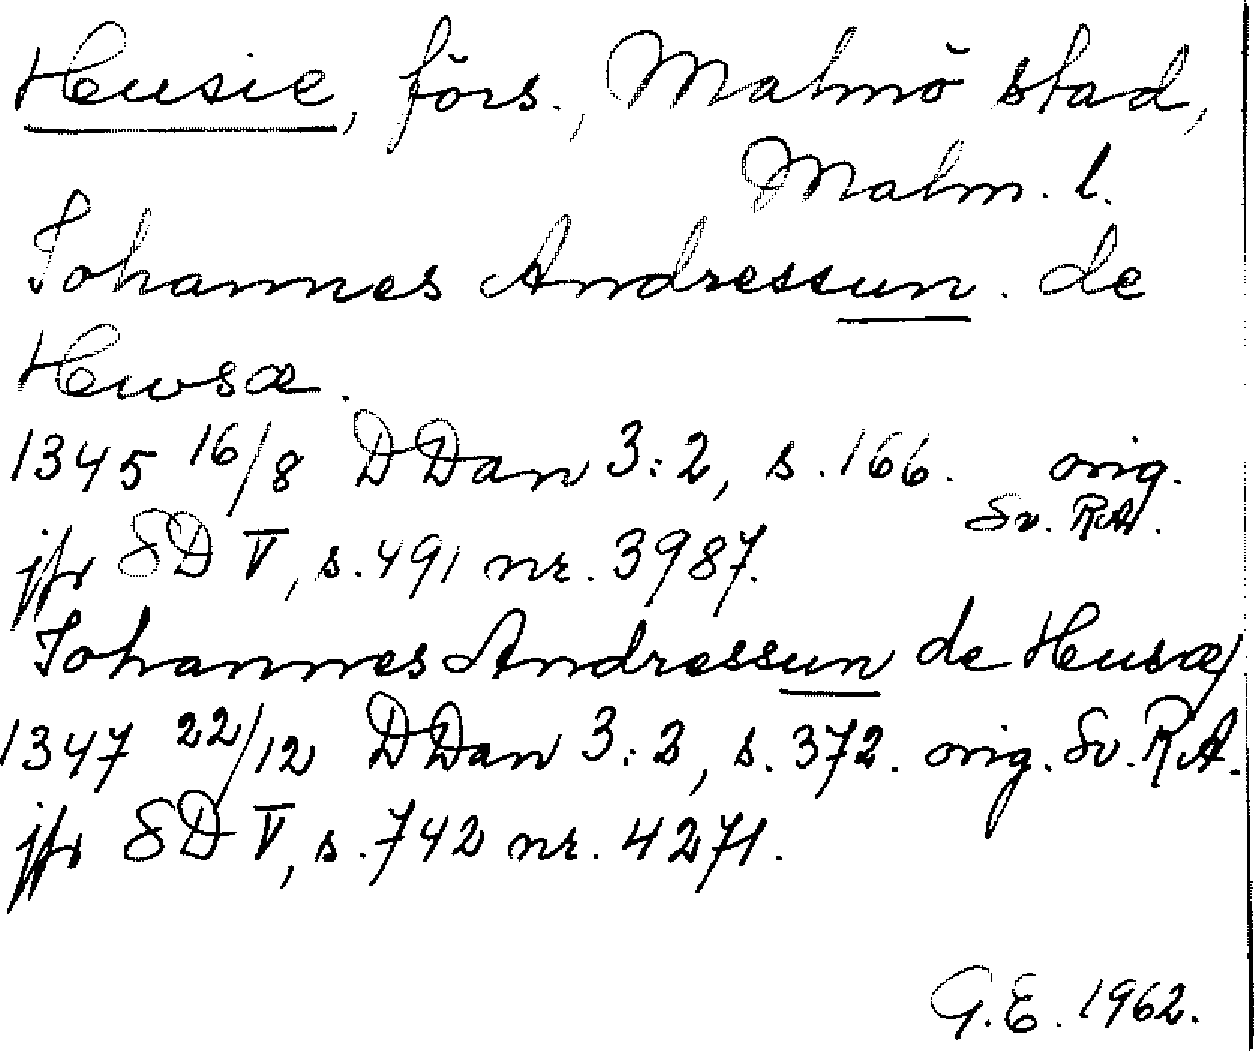 Husie, förs., Malmö stad,
Malm. l.
Johannes Andressun. de
Hwsæ.
1345 16/8 DDan 3:2, s. 166. orig.
Sv. RA.
jfr SD V, s. 491 nr. 3987.
Johannes Andressun de Husæ
1347 22/12 DDan 3:2, s. 372. orig. Sv. RA.
jfr SD V, s. 742 nr. 4271.
G.E. 1962.